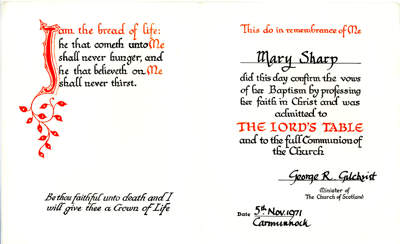 I am the bread of life:
he that cometh unto Me
shall never hunger, and
he that believeth on Me
shall never thirst.
Be thou faithful unto death and I
will give thee a Crown of Life
This do in remembrance of Me
Mary Sharp
did this day confirm the vows
of her Baptism by professing
her faith in Christ and was
admitted to
THE LORD'S TABLE
and to the full Communion of
the Church
George R. Gilchrist
Minister of
The Church of Scotland
Date 5th Nov. 1971
Carmunnock